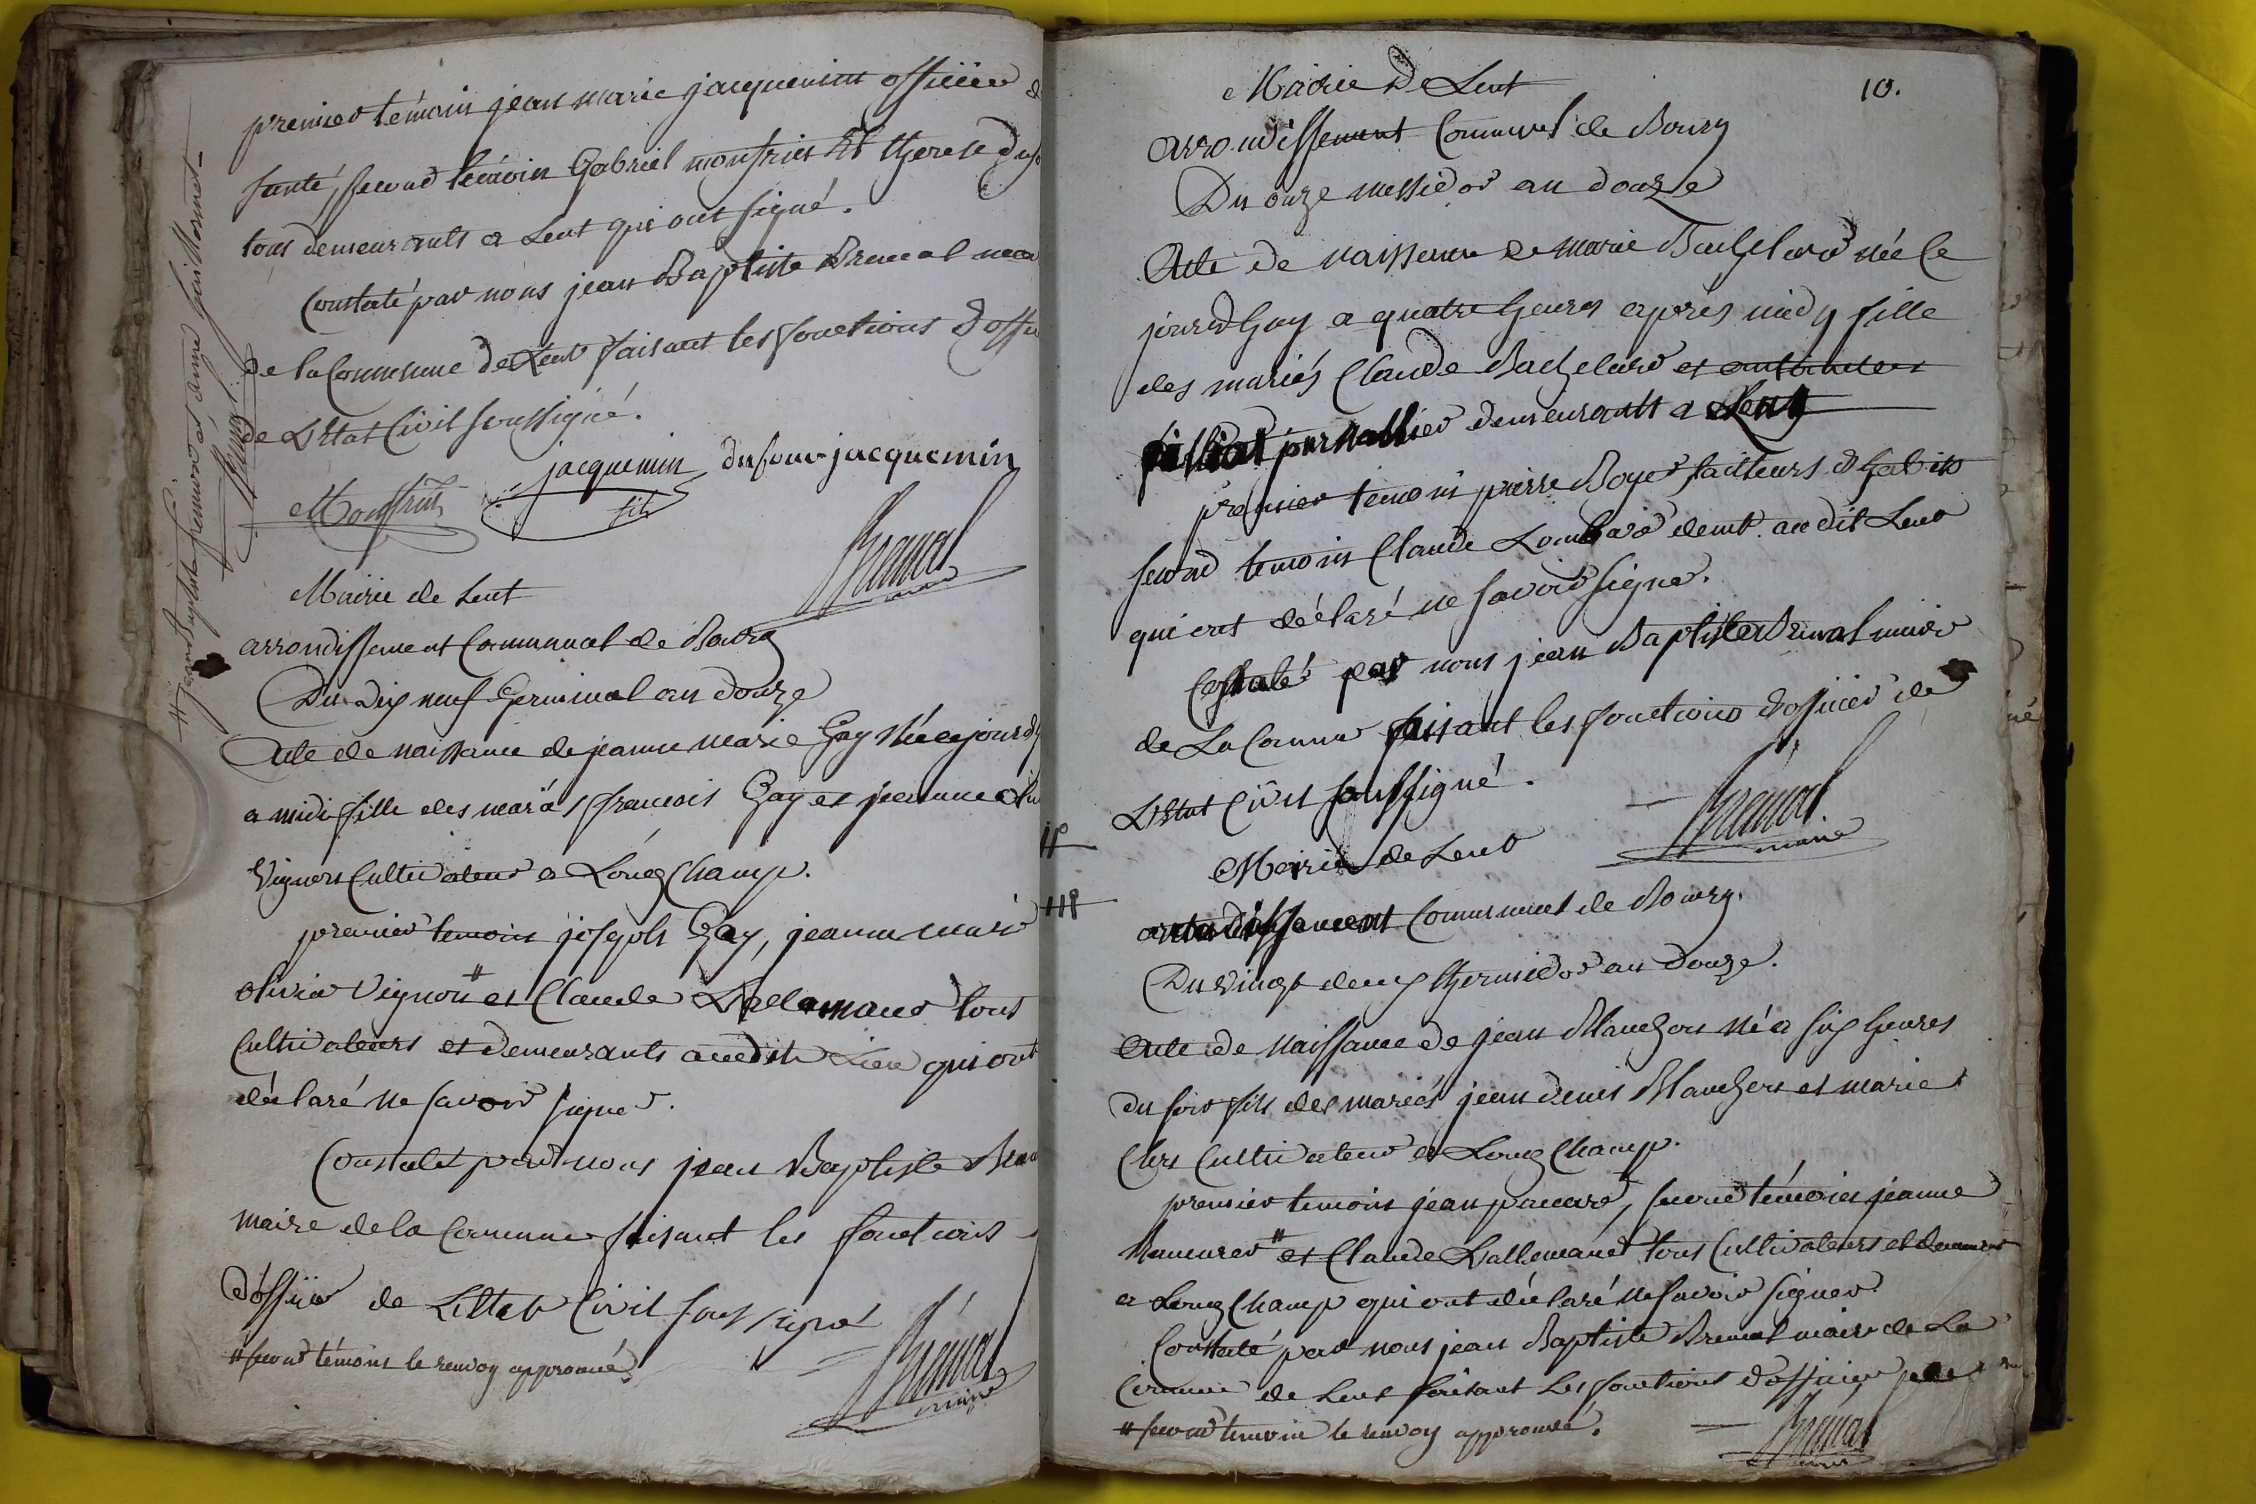 premier témoin jean marie jacquemin officier de
santé, second témoin Gabriel monfrin et therese
tous demeurants a Lent qui ont signé.
Constaté par nous jean Baptiste Brunal
de la Commune de Lent faisant les fonctions
de L'Etat Civil soussigné.
jacquemin dufour jacquemin
Monfrin fils
Brunal
maire
Mairie de Lent
arrondissement Communal de Bourg
Du dix neuf Germinal an douze
Acte de naissance de jeanne marie Gay née ce jourd
a midi fille des mariés francois Gay et jeanne
Vignon Cultivateur a Long Champ.
premier temoin joseph Gay, jeanne marie
vignon # et Claude Lallemand tous
Cultivateurs et demeurants audit Lieu qui ont
déclaré ne savoir signer.
Constaté par nous jean Baptiste
maire de la Commune faisant les fonctions
d'officier de L'Etat Civil sous signé
# second témoins le renvoy approuvé
Brunal
maire
10.
Mairie De Lent
arrondissement Communal de Bourg
Du onze messidor an douze
Acte de naissance de marie Bachelard née le
jourd'huy a quatre heures apres midy fille
des mariés Claude Bachelard et
journallier demeurants a Lent
premier temoin pierre Boyer tailleurs d'habits
second temoin Claude Lombard demt. au dit Lent
qui ont déclaré ne savoir signer.
Constaté par nous jean Baptiste Brunal maire
de La Commune faisant les fonctions d'officier de
L'Etat Civil soussigné.
Brunal
maire
Mairie de Lent
arrondissement Communal de Bourg.
Du vingt deux thermidor an Douze.
Acte de Naissance de jean Blanchon né a six heures
du soir fils des mariés jean denis Blanchon et marie
Cultivateur a Long Champ.
premier temoin jean, second témoin jeanne
# et Claude Lallemand tous Cultivateurs et
a Long Champ qui ont déclaré ne savoir signer
Constaté par nous jean Baptiste Brunal maire de La
Commune de Lent faisant Les fonctions d'officier
# second temoin le renvoy approuvé.
Brunal
maire